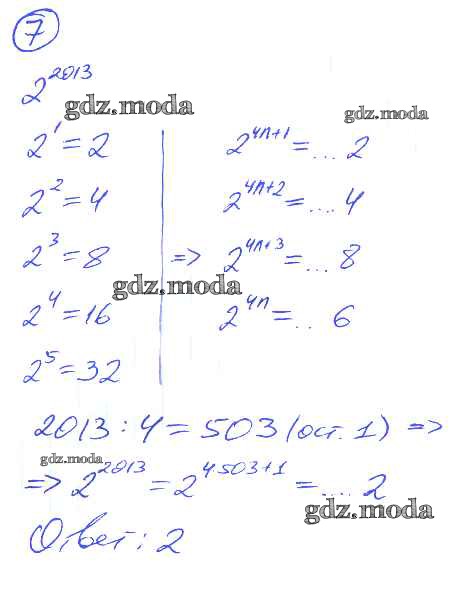 7
2^2013
gdz.moda
gdz.moda
2^1 = 2
2^2 = 4
2^3 = 8 =>
gdz.moda
2^4 = 16
2^5 = 32
2^(4n+1) = ... 2
2^(4n+2) = ... 4
2^(4n+3) = ... 8
2^(4n) = ... 6
2013 : 4 = 503 (ост. 1) =>
gdz.moda
=> 2^2013 = 2^(4·503+1) = ... 2
gdz.moda
Ответ: 2